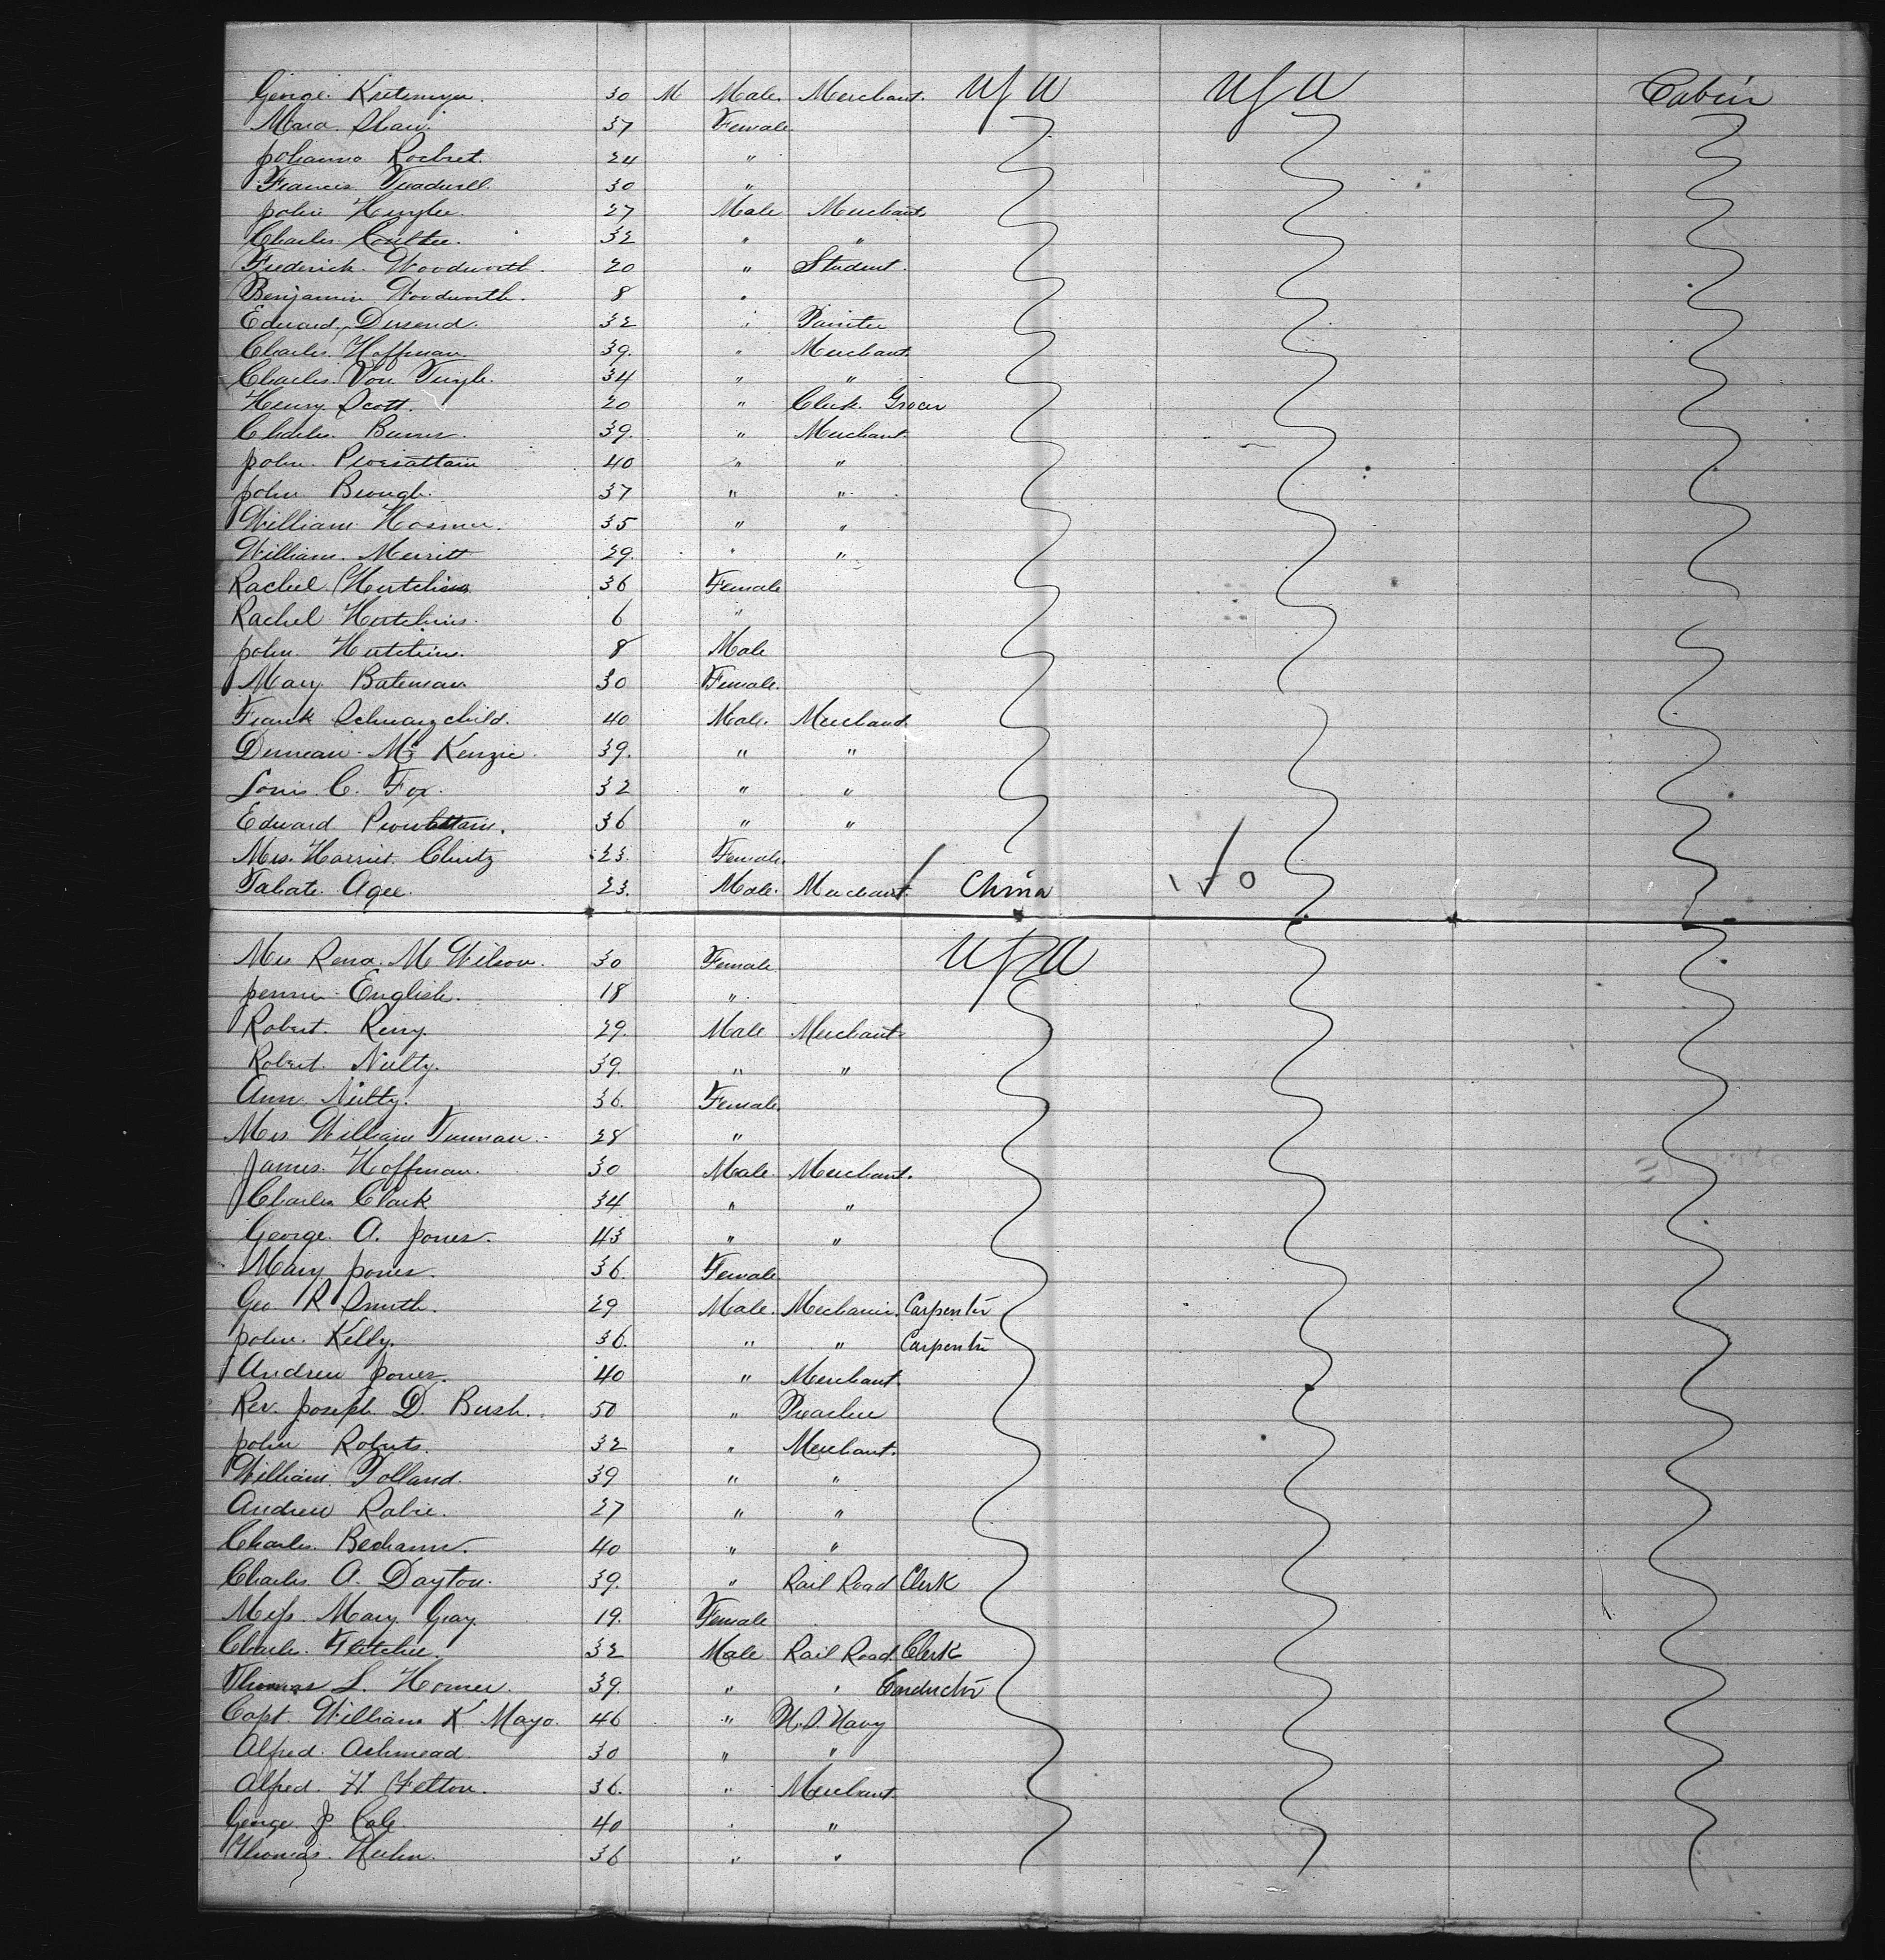 George 30 M Male Merchant USA USA Cabin
Mara Shaw 37 Female
Johanna 24 "
Francis Treadwell 30 "
John 27 Male Merchant
Charles Coulter 32 " "
Frederick Woodworth 20 " Student
Benjamin Woodworth 8 "
Edward 32 " Painter
Charles Hoffman 39 " Merchant
Charles Von 34 " "
Henry Scott 20 " Clerk Grocer
Charles 39 " Merchant
John 40 " "
John Brough 37 " "
William Hosmer 35 " "
William Merritt 29 " "
Rachel Hutchins 36 Female
Rachel Hutchins 6 "
John Hutchins 8 Male
Mary Bateman 30 Female
Frank Schwarzchild 40 Male Merchant
Duncan Mc Kenzie 39 " "
Louis C. Fox 32 " "
Edward 36 " "
Mrs. Harriet 23 Female
Tabate Agee 23 Male Merchant China
Mrs Rena M Wilson 30 Female USA
Jennie English 18 "
Robert 29 Male Merchant
Robert Nulty 39 " "
Ann Nulty 36 Female
Mrs William 28 "
James Hoffman 30 Male Merchant
Charles Clark 34 " "
George A. Jones 43 " "
Mary Jones 36 Female
Geo R Smith 29 Male Mechanic Carpenter
John Kelly 36 " " Carpenter
Andrew Jones 40 " Merchant
Rev. Joseph D. Bush 50 " Preacher
John Roberts 32 " Merchant
William Tolland 39 " "
Andrew 27 " "
Charles 40 " "
Charles A. Dayton 39 " Rail Road Clerk
Miss Mary Gray 19 Female
Charles Fletcher 32 Male Rail Road Clerk
Thomas L. Homer 39 " " Conductor
Capt William K Mayo 46 " U.S. Navy
Alfred Ashmead 30 " "
Alfred H Felton 36 " Merchant
George J Cole 40 " "
Thomas 36 " "